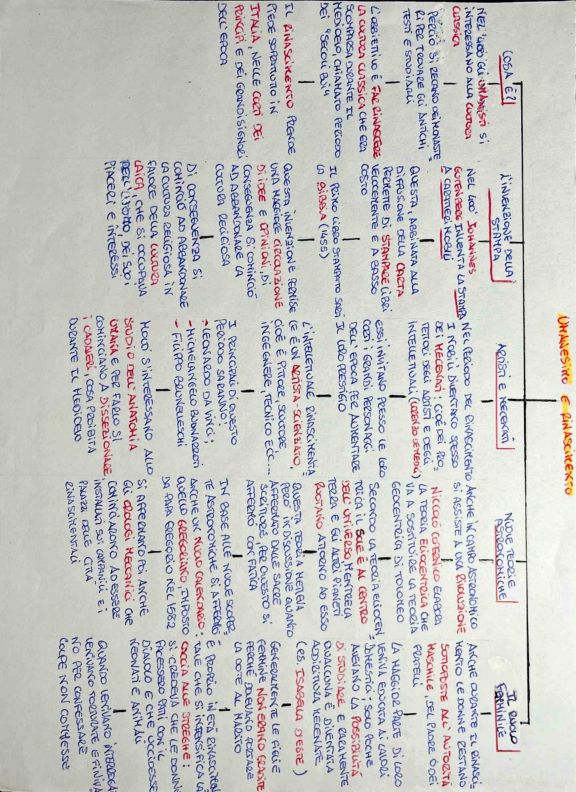 UMANESIMO E RINASCIMENTO
COSA È?
NEL '400 GLI UMANISTI SI
INTERESSANO ALLA CULTURA
CLASSICA
PERCIÒ SI RECANO NEI MONASTE=
RI PER TROVARE GLI ANTICHI
TESTI E STUDIARLI
L'OBIETTIVO È FAR RINASCERE
LA CULTURA CLASSICA CHE ERA
SCOMPARSA DURANTE IL
MEDIOEVO, CHIAMATO PERIODO
DEI "SECOLI BUI"
IL RINASCIMENTO PRENDE
PIEDE SOPRATTUTTO IN
ITALIA, NELLE CORTI DEI
PRINCIPI E DEI GRANDI SIGNORI
DELL'EPOCA
L'INVENZIONE DELLA
STAMPA
NEL '400 JOHANNES
GUTENBERG INVENTA LA STAMPA
A CARATTERI MOBILI
QUESTA, ABBINATA ALLA
DIFFUSIONE DELLA CARTA
PERMETTE DI STAMPARE LIBRI
VELOCEMENTE E A BASSO
COSTO
IL PRIMO LIBRO STAMPATO SARÀ
LA BIBBIA (1455)
QUESTA INVENZIONE FORNISCE
UNA MAGGIORE CIRCOLAZIONE
DI IDEE E OPINIONI, DI
CONSEGUENZA SI COMINCIÒ
AD ABBANDONARE LA
CULTURA RELIGIOSA
DI CONSEGUENZA SI
COMINCIÒ AD ABBANDONARE
LA CULTURA RELIGIOSA IN
FAVORE DELLA CULTURA
LAICA, CHE SI OCCUPAVA
DELL'UOMO, DEI SUOI
PIACERI E INTERESSI
ARTISTI E MECENATI
NEL PERIODO DEL RINASCIMENTO
I NOBILI DIVENTANO SPESSO
DEI MECENATI: CIOÈ DEI PRO=
TETTORI DEGLI ARTISTI E DEGLI
INTELLETTUALI (LORENZO DE MEDICI)
ESSI INVITANO PRESSO LE LORO
CORTI I GRANDI PERSONAGGI
DELL'EPOCA PER AUMENTARE
IL LORO PRESTIGIO
L'INTELLETTUALE RINASCIMENTA=
LE È UN ARTISTA-SCIENZIATO,
CIOÈ È PITTORE, SCULTORE
INGEGNERE, TECNICO ECC...
I PRINCIPALI DI QUESTO
PERIODO SARANNO:
- LEONARDO DA VINCI;
- MICHELANGELO BUONARROTI
- FILIPPO BRUNELLESCHI
MOLTI S'INTERESSANO ALLO
STUDIO DELL'ANATOMIA
UMANA E PER FARLO SI
COMINCIANO A DISSEZIONARE
I CADAVERI, COSA PROIBITA
DURANTE IL MEDIOEVO
NUOVE TEORIE
ASTRONOMICHE
ANCHE IN CAMPO ASTRONOMICO
SI ASSISTE A UNA RIVOLUZIONE
NICCOLÒ COPERNICO ELABORA
LA TEORIA ELIOCENTRICA CHE
VA A SOSTITUIRE LA TEORIA
GEOCENTRICA DI TOLOMEO
SECONDO LA TEORIA ELIOCEN=
TRICA IL SOLE È AL CENTRO
DELL'UNIVERSO, MENTRE LA
TERRA E GLI ALTRI PIANETI
RUOTANO ATTORNO AD ESSO
QUESTA TEORIA METTEVA
PERÒ IN DISCUSSIONE QUANTO
AFFERMATO DALLE SACRE
SCRITTURE PER QUESTO SI
AFFERMÒ CON FATICA
IN BASE ALLE NUOVE SCOPER=
TE ASTRONOMICHE SI AFFERMÒ
ANCHE UN NUOVO CALENDARIO:
QUELLO GREGORIANO, IMPOSTO
DA PAPA GREGORIO NEL 1582
SI AFFERMANO POI ANCHE
GLI OROLOGI MECCANICI CHE
COMINCIARONO AD ESSERE
INSTALLATI SUI CAMPANILI E I
PALAZZI DELLE CITTÀ
RINASCIMENTALI
IL RUOLO
FEMMINILE
ANCHE DURANTE IL RINASCI=
MENTO LE DONNE RESTANO
SOTTOPOSTE ALL'AUTORITÀ
MASCHILE, DEL PADRE O DEI
FRATELLI
LA MAGGIOR PARTE DI LORO
VENIVA EDUCATA AI LAVORI
DOMESTICI; SOLO POCHE
AVEVANO LA POSSIBILITÀ
DI STUDIARE E RARAMENTE
QUALCUNA È DIVENTATA
ADDIRITTURA MECENATE
(ES. ISABELLA D'ESTE)
GENERALMENTE LE FIGLIE
FEMMINE NON ERANO GRADITE
PERCHÉ DOVEVANO PORTARE
LA DOTE AL MARITO
È PROPRIO IN ETÀ RINASCIMEN
TALE CHE SI INTENSIFICA LA
CACCIA ALLE STREGHE:
SI CREDEVA CHE LE DONNE
FACESSERO PATTI CON IL
DIAVOLO E CHE UCCIDESSERO
NEONATI E ANIMALI
QUANDO VENIVANO INTERROGATE
VENIVANO TORTURATE E FINIVA=
NO PER CONFESSARE
COLPE NON COMMESSE